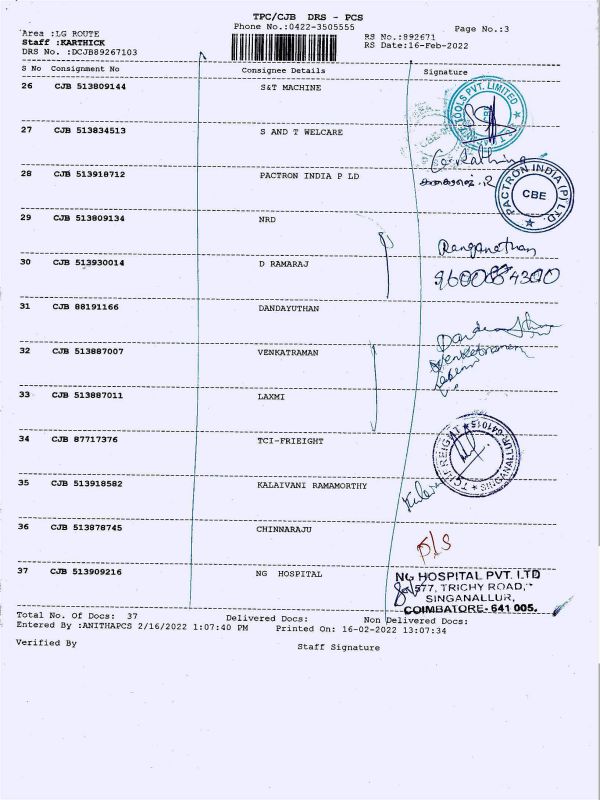 TPC/CJB DRS - PCS
Phone No.:0422-3505555
Page No.:3
Area :LG ROUTE
RS No.:892671
Staff :KARTHICK
RS Date:16-Feb-2022
DRS No. :DCJB89267103
S No Consignment No Consignee Details Signature
26 CJB 513809144 S&T MACHINE
TOOLS PVT. LIMITED
27 CJB 513834513 S AND T WELCARE
28 CJB 513918712 PACTRON INDIA P LD
PACTRON INDIA (P) LTD.
CBE
29 CJB 513809134 NRD
Ranganathan
30 CJB 513930014 D RAMARAJ
31 CJB 88191166 DANDAYUTHAN
32 CJB 513887007 VENKATRAMAN
Venkatraman
33 CJB 513887011 LAXMI
34 CJB 87717376 TCI-FRIEIGHT
TCI FREIGHT
SINGANALLUR-641015
35 CJB 513918582 KALAIVANI RAMAMORTHY
36 CJB 513878745 CHINNARAJU
37 CJB 513909216 NG HOSPITAL
NG HOSPITAL PVT. LTD
577, TRICHY ROAD,
SINGANALLUR,
COIMBATORE- 641 005.
Total No. Of Docs: 37 Delivered Docs: Non Delivered Docs:
Entered By :ANITHAPCS 2/16/2022 1:07:40 PM Printed On: 16-02-2022 13:07:34
Verified By Staff Signature